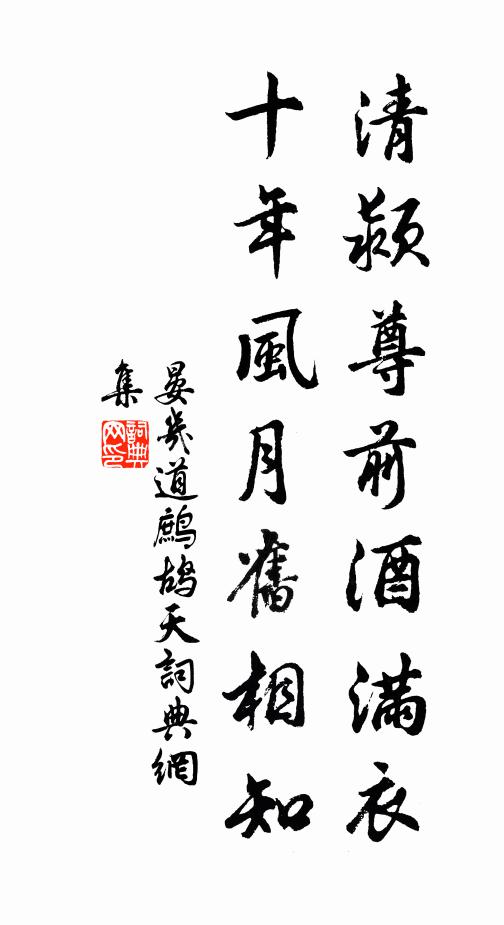 清潁尊前酒滿衣
十年風月舊相知
晏幾道鷓鴣天詞典網
集
詞典
网印